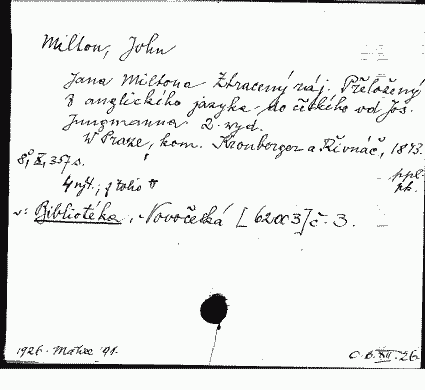 Milton, John
Jana Miltona Ztracený ráj. Přeložený
z anglického jazyka do českého od Jos.
Jungmanna 2. vyd.
W Praze, kom. Kronberger a Řivnáč, 1843.
8°, X, 357 s.
ppl.
v: Bibliotéka, Novočeská [62003] č. 3.
1926.